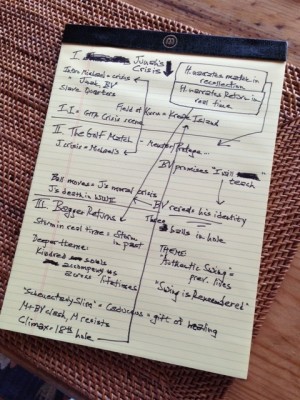 I. Junah's
Crisis
H. narrates match in
recollection
H. narrates Return in
real time
Intro Michael = crisis
" Junah, BV
Slave Quarters
I-I = Grp Crisis
Field of Kuru = Krewe Island
II. The Golf Match
J crisis = Michael's
Meeter/Refuge...
BV promises "I will
teach
Ball moves = J's moral crisis
J's death in WWII
BV reveals his identity
Three
balls in hole.
III. Bagger Returns
Storm in real time = Storm
in past
Deeper theme:
Kindred souls
accompany us
across lifetimes
THEME
"Authentic Swing" =
prev. lives
"Swing is Remembered"
"Schenectady Slim" = Caduceus = gift of healing
M + BV clash, M resists
Climax = 18th
hole